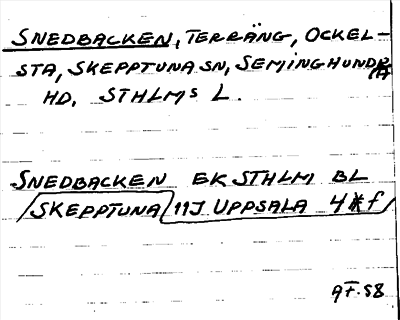 SNEDBACKEN, TERRÄNG, OCKEL-
STA, SKEPPTUNA SN, SEMINGHUNDRA
HD, STHLMS L.
SNEDBACKEN EK STHLM BL
SKEPPTUNA 11J UPPSALA 4 f